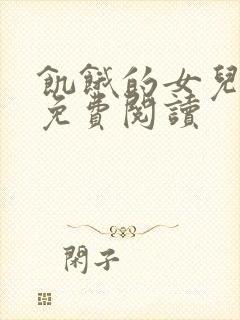 飢餓的女兒
免費閱讀
閑子